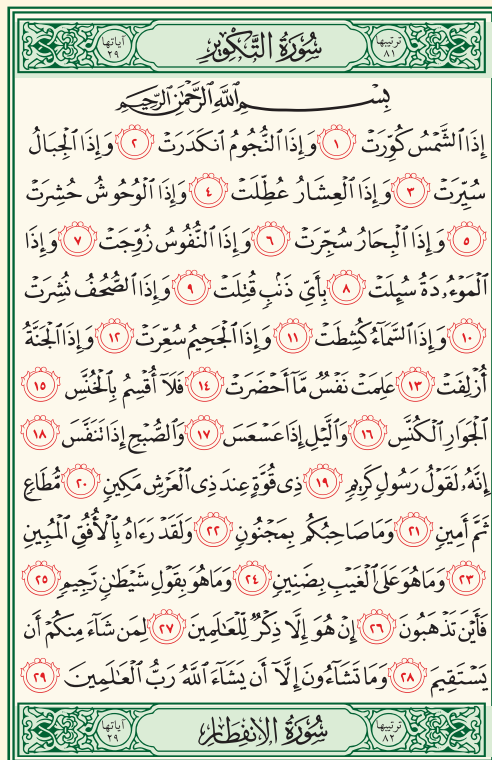 ترتيبها ٨١ سُورَةُ التَّكْوِيرِ آياتها ٢٩
بِسْمِ ٱللَّهِ ٱلرَّحْمَٰنِ ٱلرَّحِيمِ
إِذَا ٱلشَّمْسُ كُوِّرَتْ ١ وَإِذَا ٱلنُّجُومُ ٱنكَدَرَتْ ٢ وَإِذَا ٱلْجِبَالُ
سُيِّرَتْ ٣ وَإِذَا ٱلْعِشَارُ عُطِّلَتْ ٤ وَإِذَا ٱلْوُحُوشُ حُشِرَتْ
٥ وَإِذَا ٱلْبِحَارُ سُجِّرَتْ ٦ وَإِذَا ٱلنُّفُوسُ زُوِّجَتْ ٧ وَإِذَا
ٱلْمَوْءُۥدَةُ سُئِلَتْ ٨ بِأَىِّ ذَنۢبٍ قُتِلَتْ ٩ وَإِذَا ٱلصُّحُفُ نُشِرَتْ
١٠ وَإِذَا ٱلسَّمَآءُ كُشِطَتْ ١١ وَإِذَا ٱلْجَحِيمُ سُعِّرَتْ ١٢ وَإِذَا ٱلْجَنَّةُ
أُزْلِفَتْ ١٣ عَلِمَتْ نَفْسٌ مَّآ أَحْضَرَتْ ١٤ فَلَآ أُقْسِمُ بِٱلْخُنَّسِ ١٥
ٱلْجَوَارِ ٱلْكُنَّسِ ١٦ وَٱلَّيْلِ إِذَا عَسْعَسَ ١٧ وَٱلصُّبْحِ إِذَا تَنَفَّسَ ١٨
إِنَّهُۥ لَقَوْلُ رَسُولٍ كَرِيمٍ ١٩ ذِى قُوَّةٍ عِندَ ذِى ٱلْعَرْشِ مَكِينٍ ٢٠ مُّطَاعٍ
ثَمَّ أَمِينٍ ٢١ وَمَا صَاحِبُكُم بِمَجْنُونٍ ٢٢ وَلَقَدْ رَءَاهُ بِٱلْأُفُقِ ٱلْمُبِينِ
٢٣ وَمَا هُوَ عَلَى ٱلْغَيْبِ بِضَنِينٍ ٢٤ وَمَا هُوَ بِقَوْلِ شَيْطَٰنٍ رَّجِيمٍ ٢٥
فَأَيْنَ تَذْهَبُونَ ٢٦ إِنْ هُوَ إِلَّا ذِكْرٌ لِّلْعَٰلَمِينَ ٢٧ لِمَن شَآءَ مِنكُمْ أَن
يَسْتَقِيمَ ٢٨ وَمَا تَشَآءُونَ إِلَّآ أَن يَشَآءَ ٱللَّهُ رَبُّ ٱلْعَٰلَمِينَ ٢٩
ترتيبها ٨٢ سُورَةُ الانفِطَارِ آياتها ٢٩